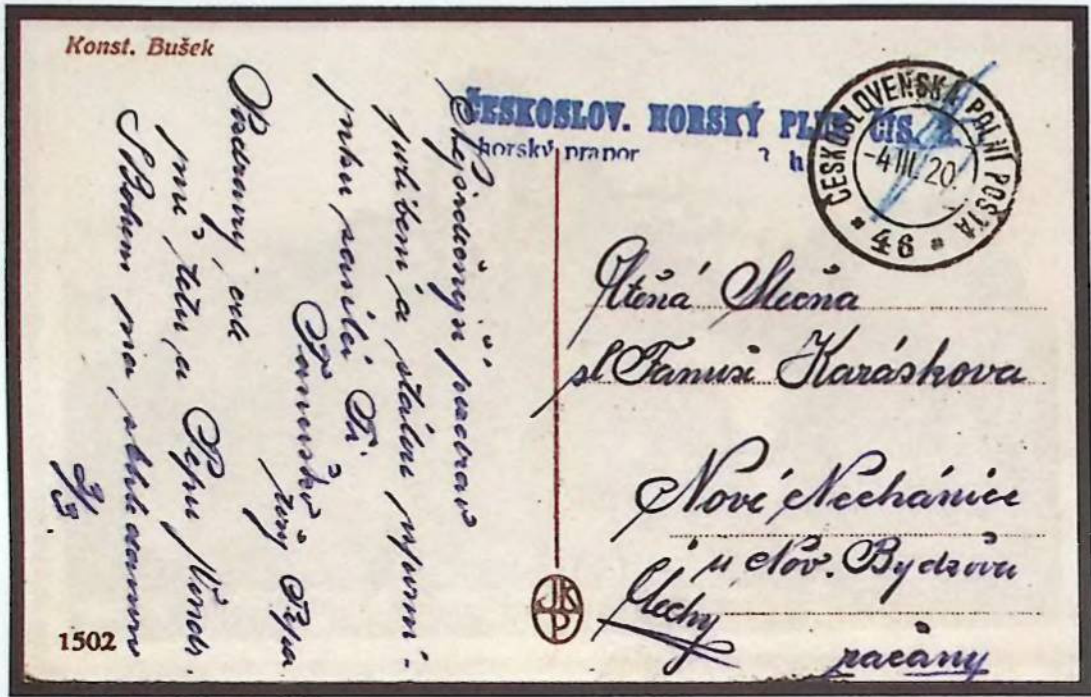 Konst. Bušek
ČESKOSLOV. HORSKÝ PLUK ČÍS. 2.
horský prapor
ČESKOSLOVENSKÁ POLNÍ POŠTA
-4.III.20.
* 46 *
Ctěná Slečna
sl Fanusi Karáskova
Nové Nechánice
u Nov. Bydžova
Čechy
Nejsrdečnější pozdrav
políbení a stálou vzpomí-
nku zasílá Ti
Fanuško
tvůj Pepa
Pozdravuj
mi tetu a Pepu
S Bohem na shledanou
3/3
JKP
1502